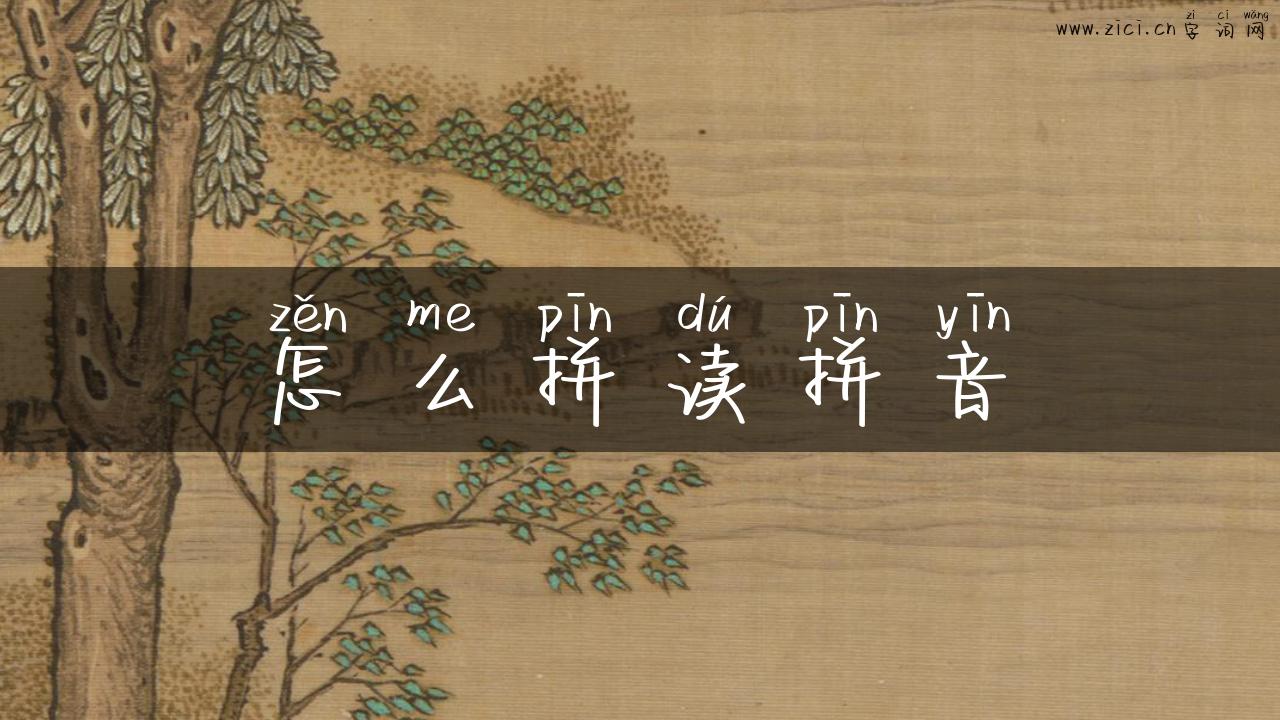 zì cí wǎng
www.zici.cn 字词网
zěn me pīn dú pīn yīn
怎么拼读拼音